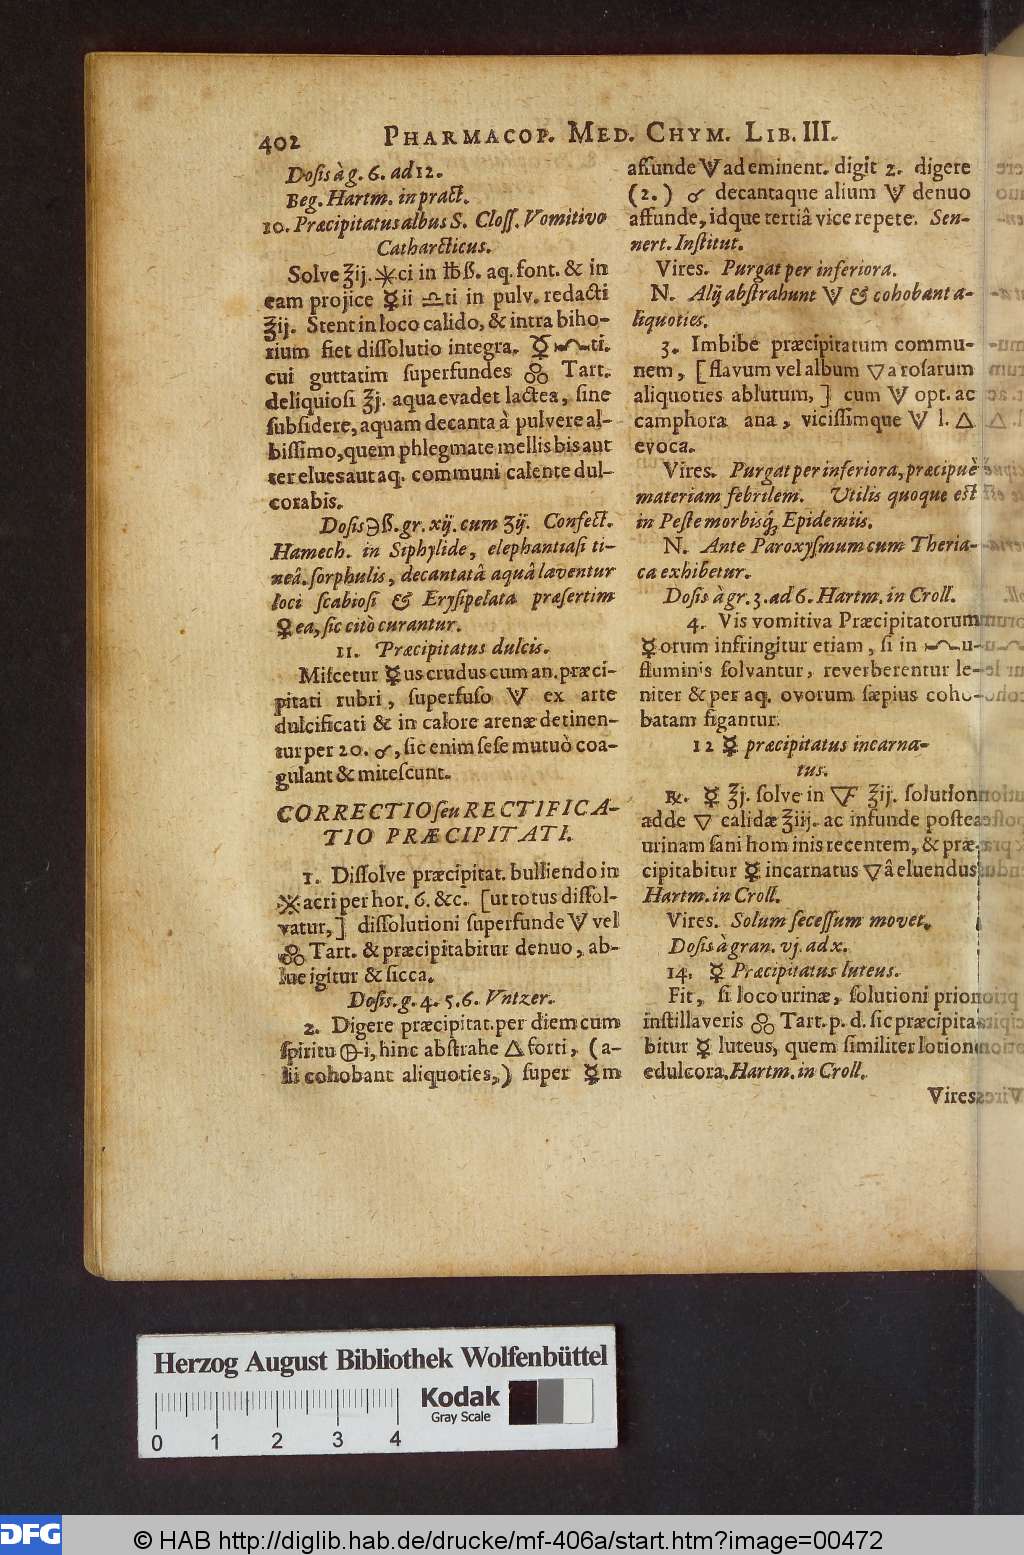 402 PHARMACOP. MED. CHYM. LIB. III.
Dosis à g. 6. ad 12.
Beg. Hartm. in pract.
10. Præcipitatus albus S. Closs. Vomitivo
Catharcticus.
Solve ℥ij. ✳ci in ℔ß. aq. font. & in
eam projice ☿ii ♎ti in pulv. redacti
℥ij. Stent in loco calido, & intra biho-
rium fiet dissolutio integra. ☿ ti.
cui guttatim superfundes Tart.
deliquiosi ℥j. aqua evadet lactea, sine
subsidere, aquam decanta à pulvere al-
bissimo, quem phlegmate mellis bis aut
ter elues aut aq. communi calente dul-
corabis.
Dosis ℈ß. gr. xij. cum ʒij. Confect.
Hamech. in Siphylide, elephantiasi ti-
neâ. sorphulis, decantatâ aquâ laventur
loci scabiosi & Erysipelata præsertim
♀ea, sic citò curantur.
11. Præcipitatus dulcis.
Miscetur ☿us crudus cum an. præci-
pitati rubri, superfuso ex arte
dulcificati & in calore arenæ detinen-
tur per 20. , sic enim sese mutuò coa-
gulant & mitescunt.
CORRECTIO seu RECTIFICA-
TIO PRÆCIPITATI.
1. Dissolve præcipitat. bulliendo in
acri per hor. 6. &c. [ut totus dissol-
vatur,] dissolutioni superfunde vel
Tart. & præcipitabitur denuo, ab-
lue igitur & sicca.
Dosis. g. 4. 5. 6. Vntzer.
2. Digere præcipitat. per diem cum
spiritu i, hinc abstrahe △ forti, (a-
lii cohobant aliquoties,) super ☿m
affunde ad eminent. digit 2. digere
(2.) decantaque alium denuo
affunde, idque tertiâ vice repete. Sen-
nert. Institut.
Vires. Purgat per inferiora.
N. Alij abstrahunt & cohobant a-
liquoties.
3. Imbibe præcipitatum commu-
nem, [flavum vel album ▽a rosarum
aliquoties ablutum,] cum opt. ac
camphora ana, vicissimque l. △
evoca.
Vires. Purgat per inferiora, præcipuè
materiam febrilem. Utilis quoque est
in Peste morbisq́; Epidemiis.
N. Ante Paroxysmum cum Theria-
ca exhibetur.
Dosis à gr. 3. ad 6. Hartm. in Croll.
4. Vis vomitiva Præcipitatorum
☿orum infringitur etiam, si in u-
fluminis solvantur, reverberentur le-
niter & per aq. ovorum sæpius coho-
batam figantur.
12 ☿ præcipitatus incarna-
tus.
℞. ☿ ℥j. solve in ▽F ℥ij. solution
adde ▽ calidæ ℥iij. ac infunde postea
urinam sani hominis recentem, & præ-
cipitabitur ☿ incarnatus ▽â eluendus
Hartm. in Croll.
Vires. Solum secessum movet.
Dosis à gran. vj. ad x.
14. ☿ Præcipitatus luteus.
Fit, si loco urinæ, solutioni prio
instillaveris Tart. p. d. sic præcipita-
bitur ☿ luteus, quem similiter lotion
edulcora. Hartm. in Croll.
Vires
Herzog August Bibliothek Wolfenbüttel
Kodak
Gray Scale
0 1 2 3 4
DFG © HAB http://diglib.hab.de/drucke/mf-406a/start.htm?image=00472